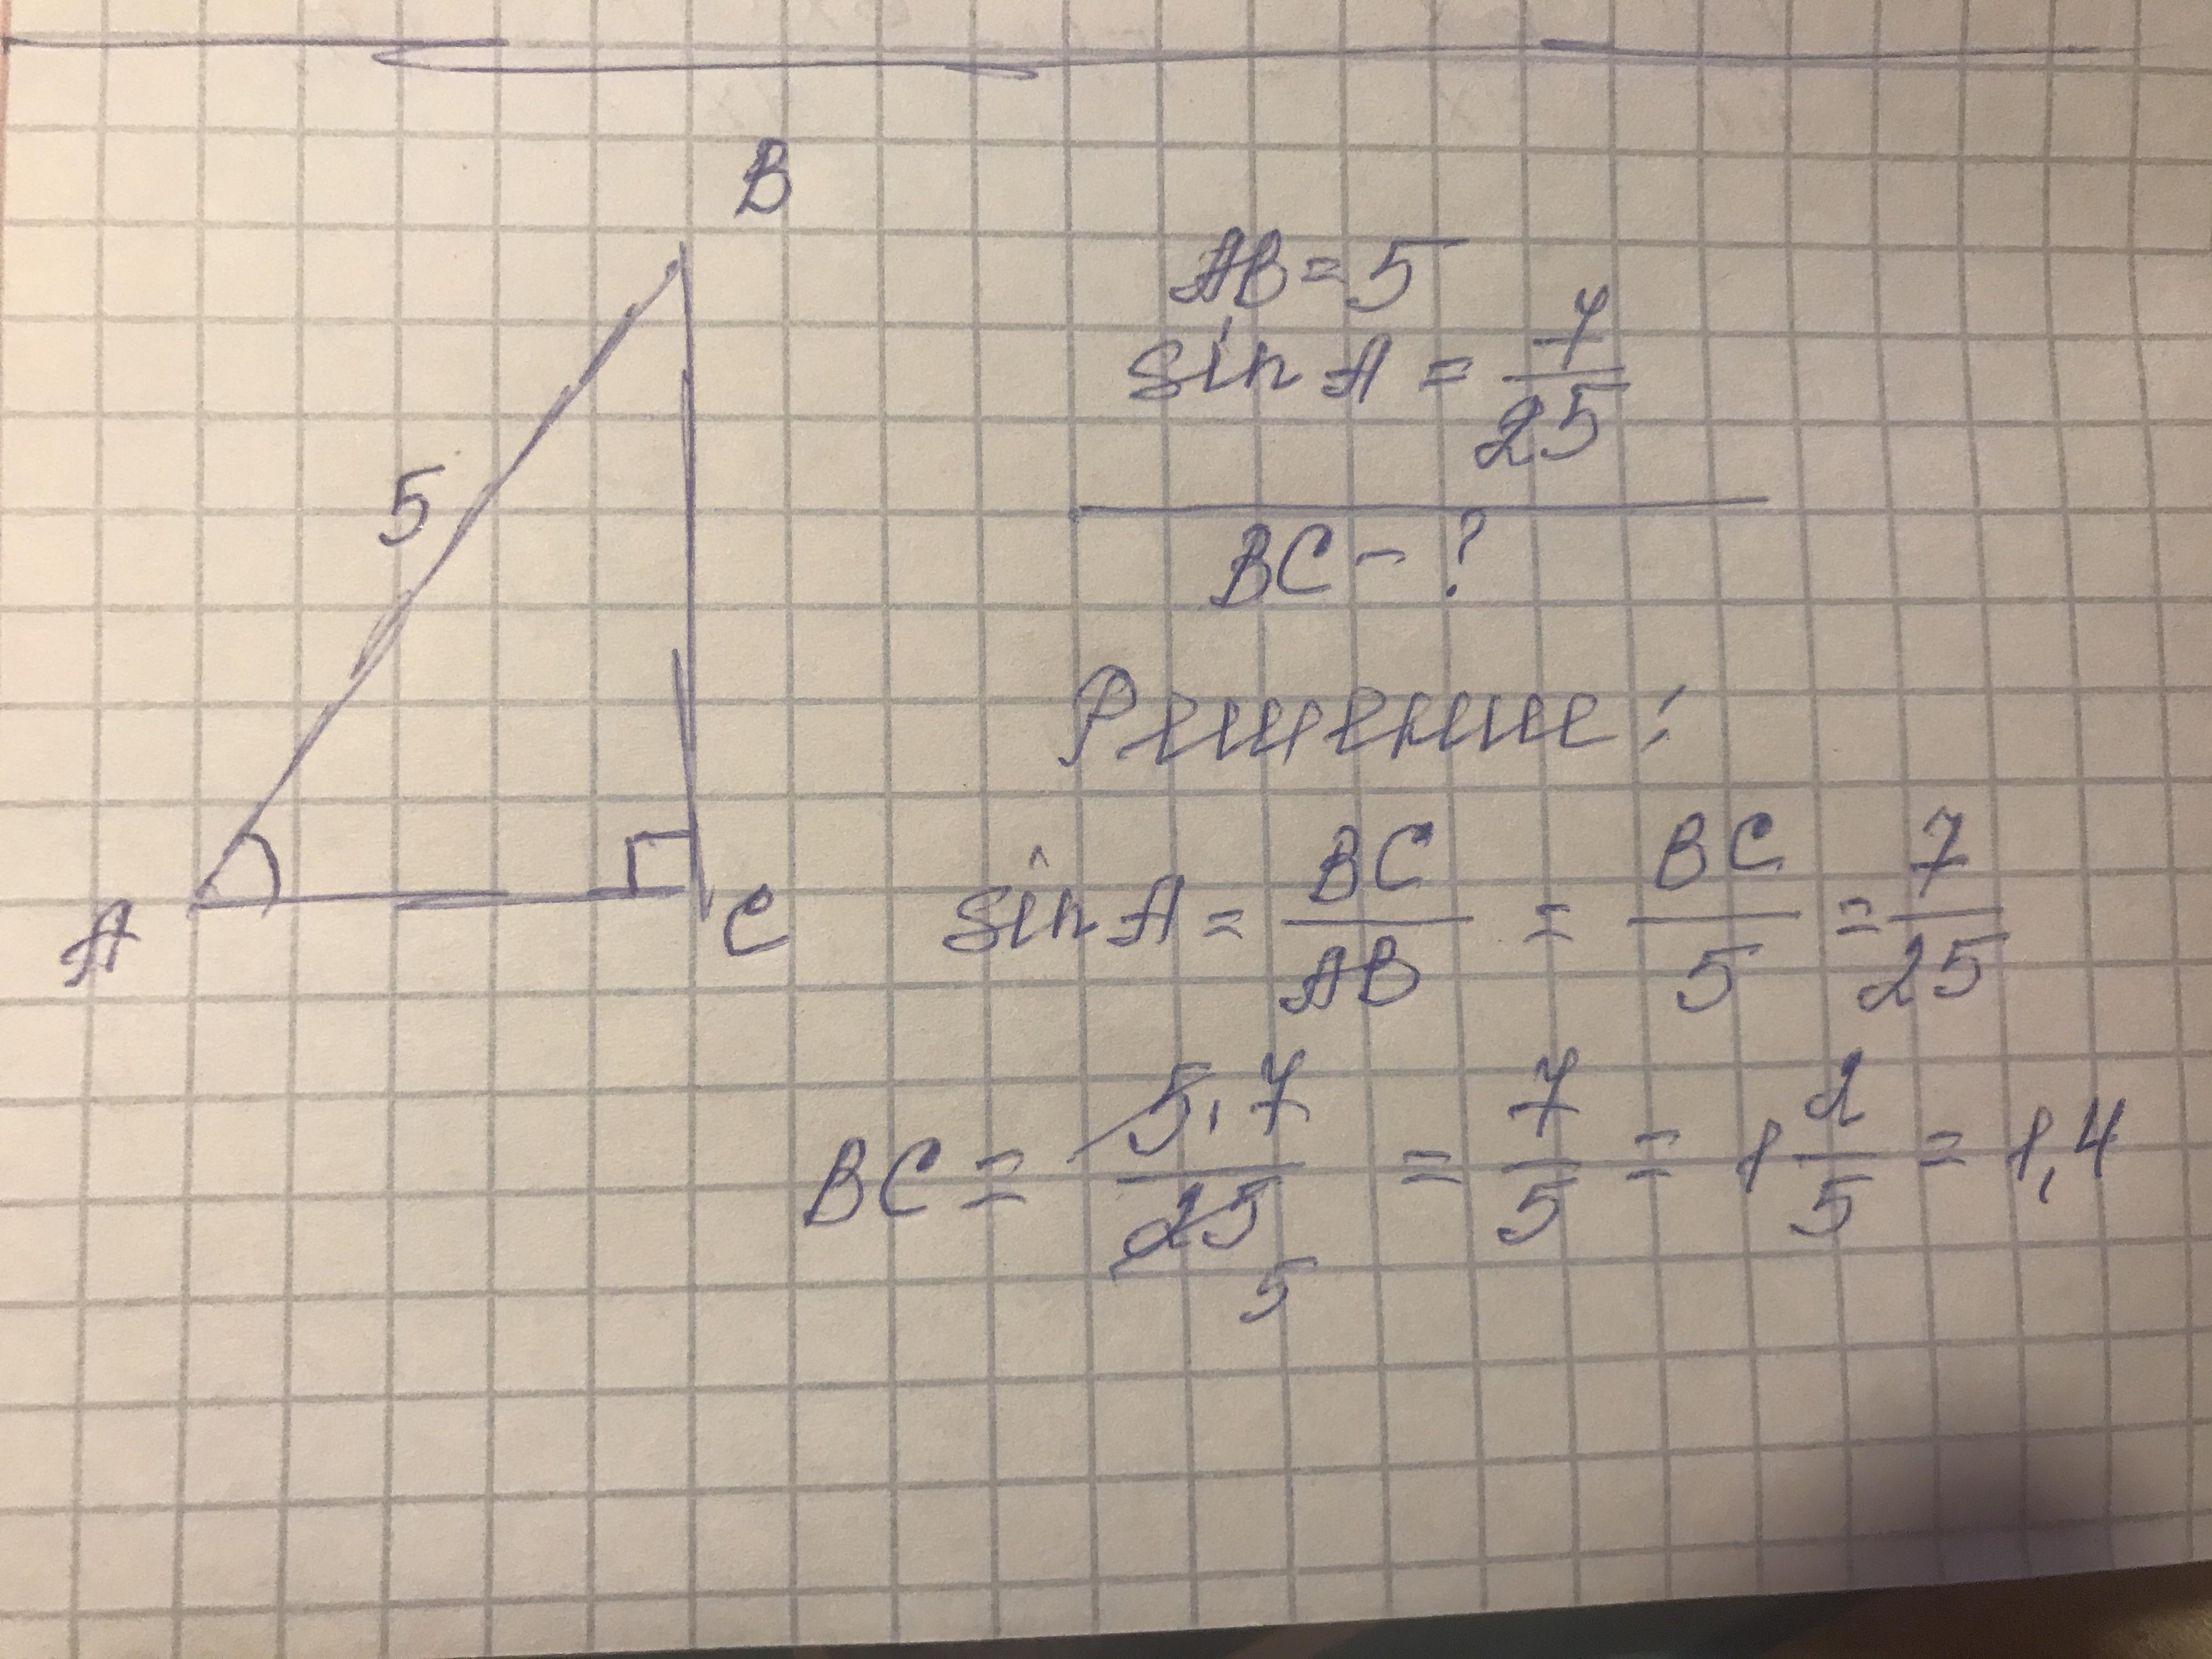 B
AB = 5
sin A = 7/25
5
BC - ?
Решение:
A
C
sin A = BC/AB = BC/5 = 7/25
BC = 5·7/25 = 7/5 = 1 2/5 = 1,4
5